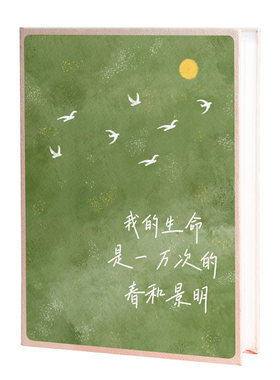 我的生命
是一万次的
春和景明